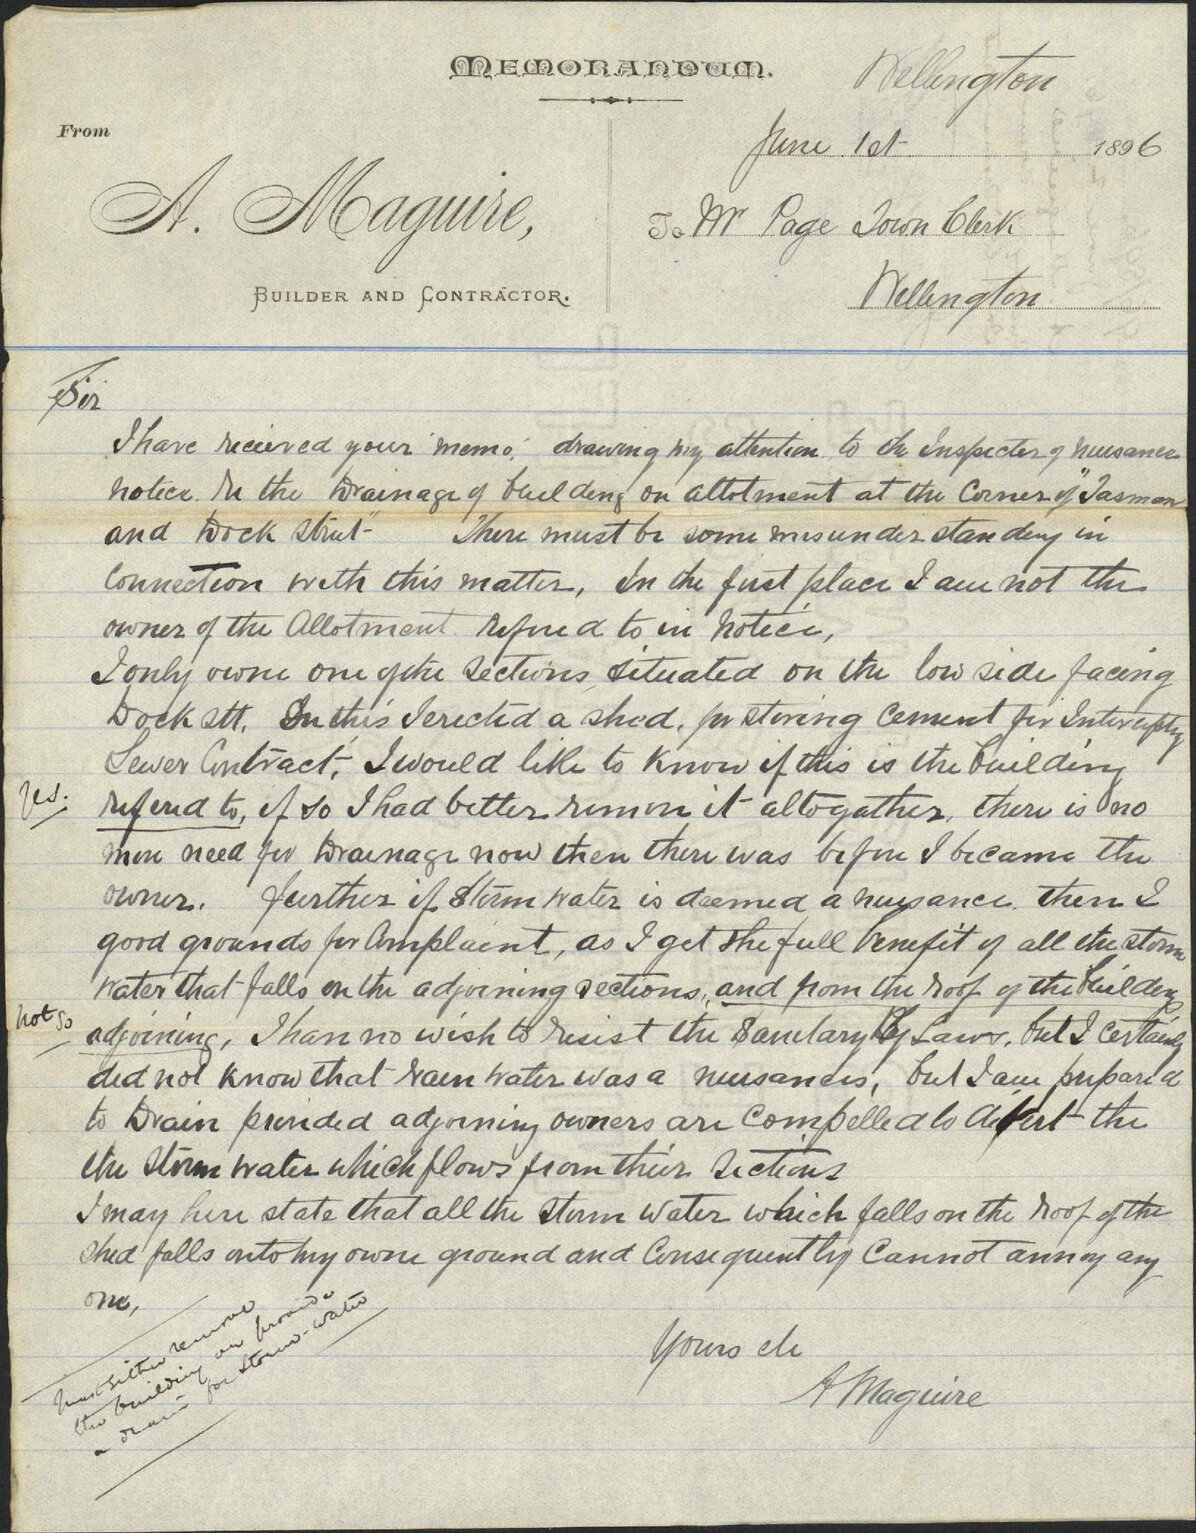 MEMORANDUM.
Wellington
From
June 1st 1896
A. Maguire,
To Mr Page Town Clerk
BUILDER AND CONTRACTOR.
Wellington
Sir
I have recieved your "memo" drawing my attention to the Inspector of nuisances
notice. Re the Drainage of building on allotment at the Corner of "Tasman
and Dock Street" There must be some misunderstanding in
Connection with this matter, In the first place I am not the
owner of the Allotment refered to in Notice,
I only owne one of the Sections, situated on the low side facing
Dock stt. On this I erected a shed, for storing Cement for Intercepting
Sewer Contract, I would like to know if this is the building
Yes.
refered to, if so I had better remove it altogather, there is no
more need for Drainage now then there was before I became the
owner. further if Storm water is deemed a nuisance. then I
good grounds for Complaint, as I get the full benefit of all the storm
water that falls on the adjoining sections, and from the roof of the building
not so
adjoining, I have no wish to resist the Sanitary By Laws, but I certainly
did not know that rain water was a nuisances, but I am prepared
to Drain provided adjoining owners are Compelled to divert the
the storm water which flows from their Sections
I may here state that all the storm water which falls on the roof of the
shed falls onto my owne ground and Consequently Cannot annoy any
one,
Must either remove
the building or provide
a drain for Storm-water
Yours etc
A Maguire